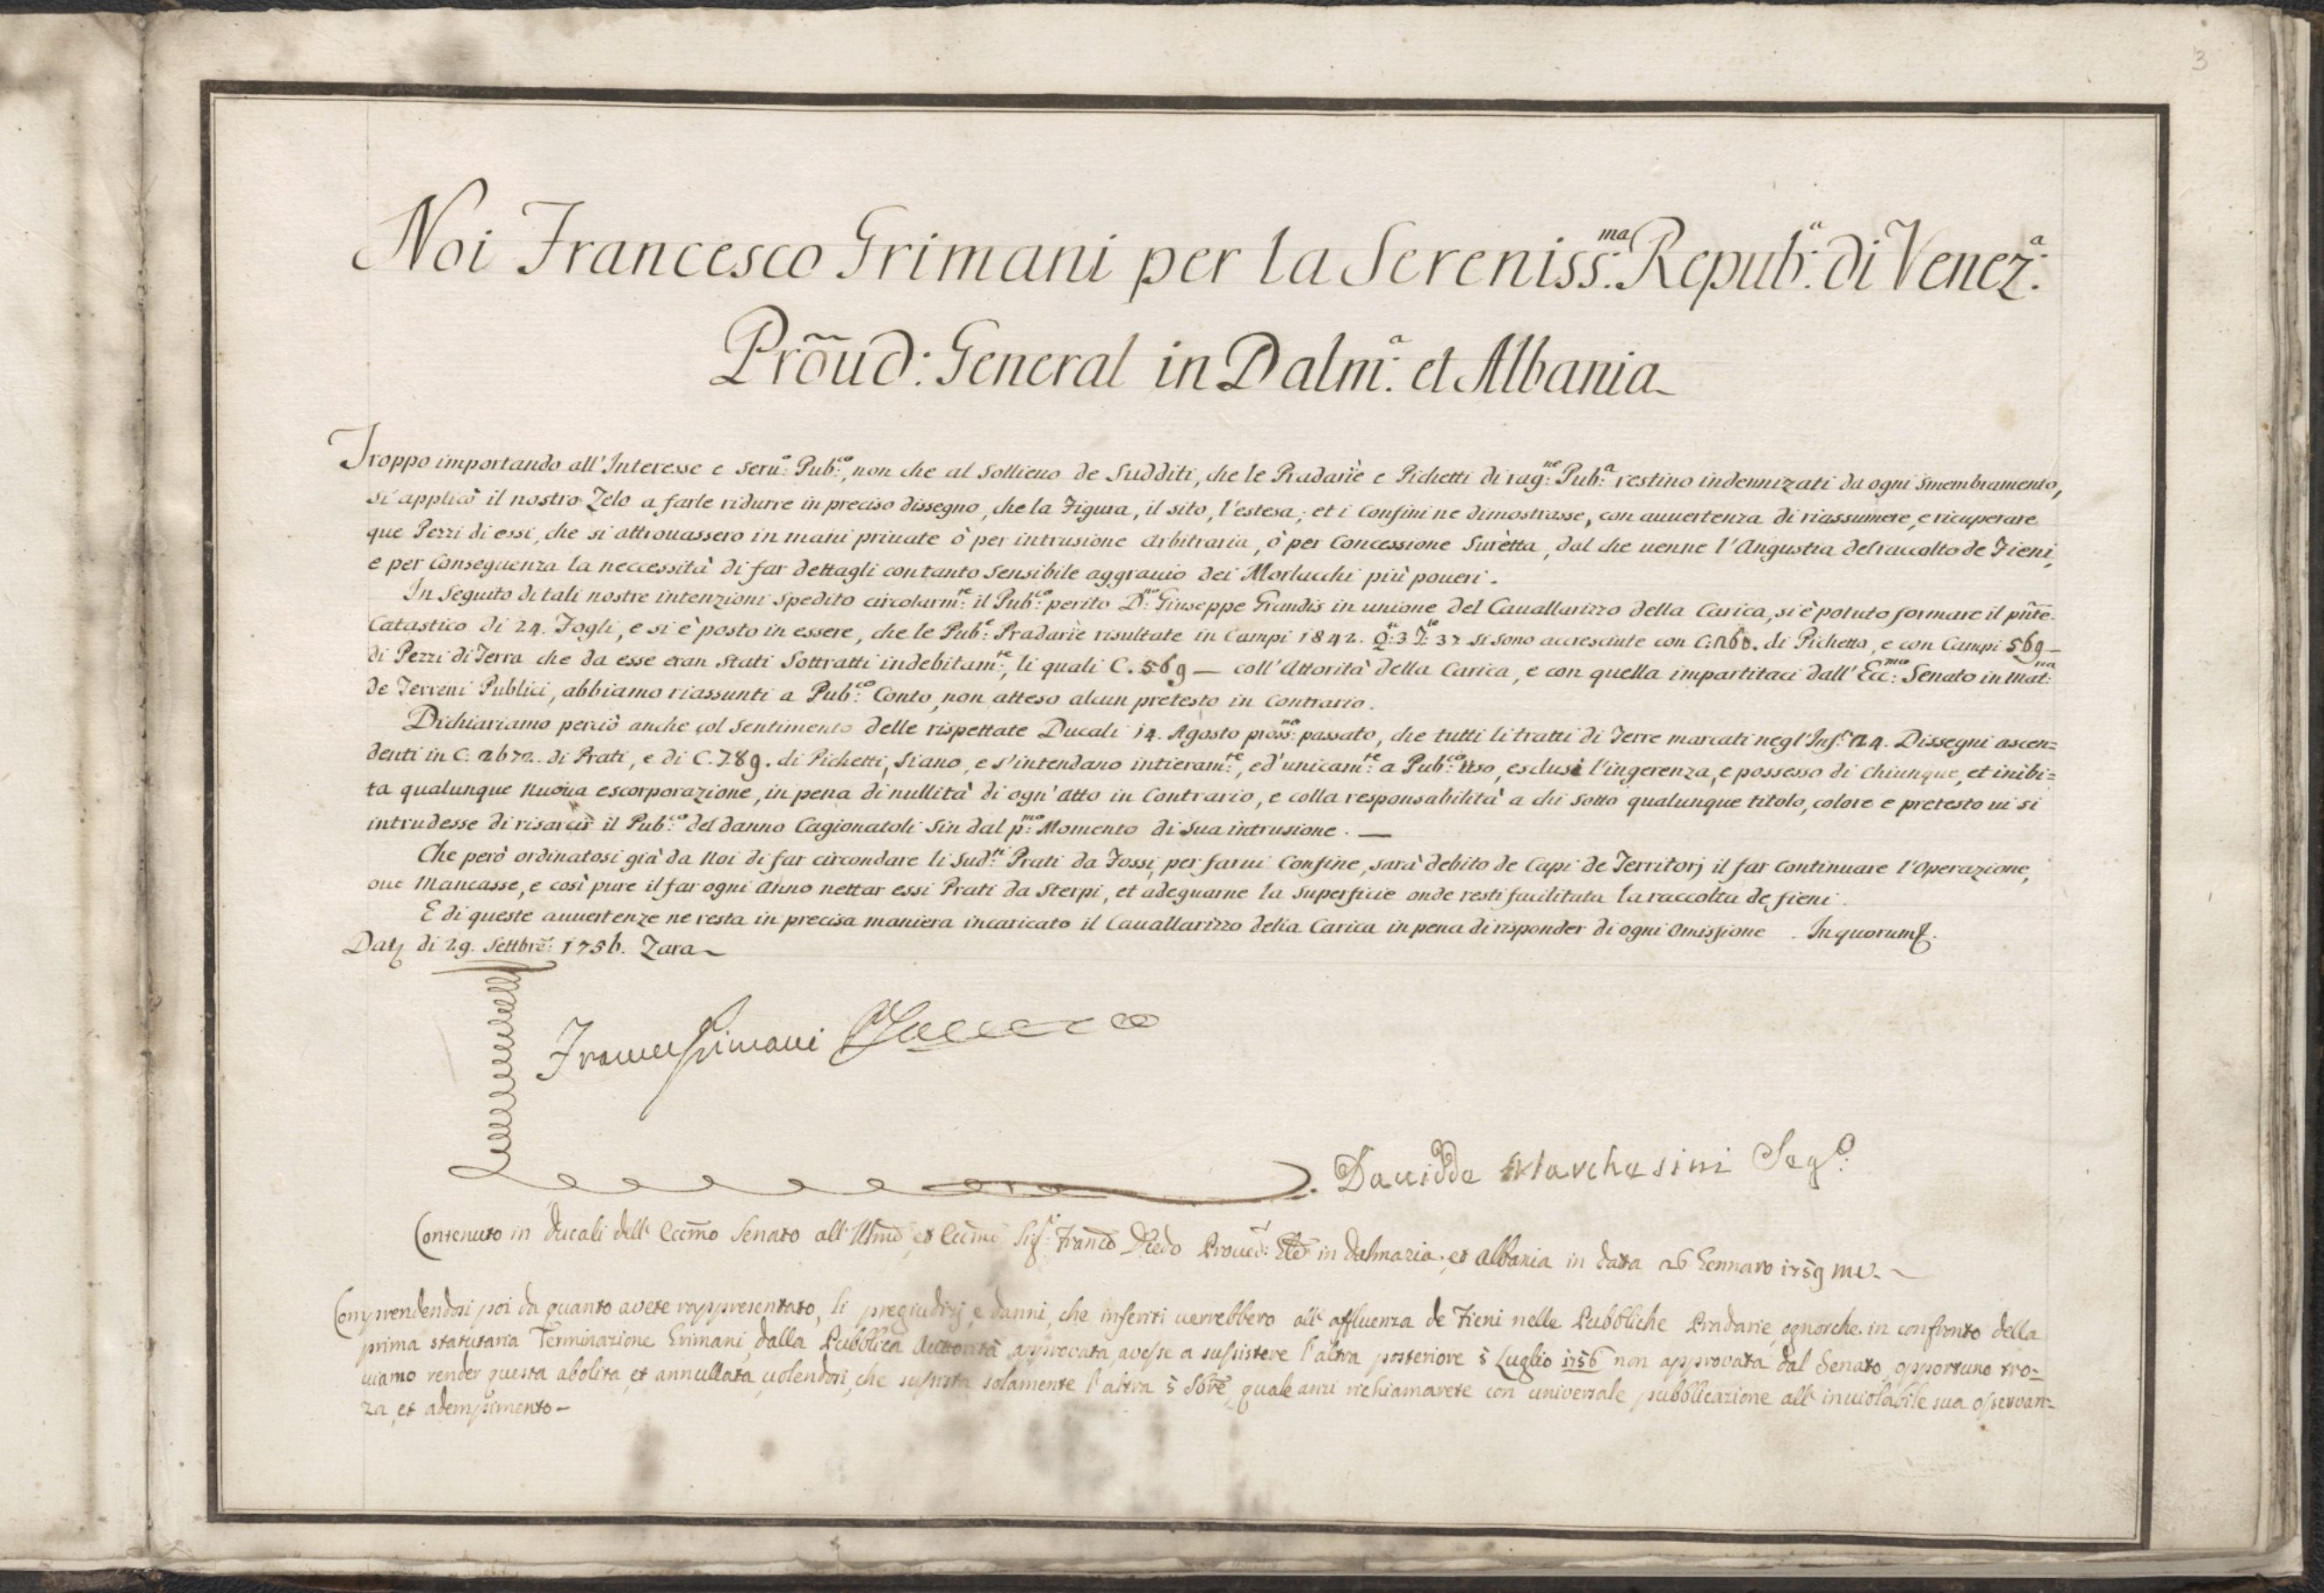 3
Noi Francesco Grimani per la Sereniss:ma Repub:a di Venez:a
Prõud: General in Dalm:a et Albania
Troppo importando all'Interesse e seru:o Pub:co, non che al sollieuo de Sudditi, che le Pradarìe e Pichetti di rag:ne Pub:a restino indennizati da ogni smembramento,
si applicò il nostro Zelo a farle ridurre in preciso dissegno, che la Figura, il sito, l'estesa; et i Confini ne dimostrasse, con auuertenza di riassumere, e ricuperare
que Pezzi di essi, che si attrouassero in mani priuate ò per intrusione arbitraria, ò per Concessione Surètta, dal che uenne l'Angustia del raccolto de Fieni,
e per Conseguenza la neccessità di far dettagli con tanto sensibile aggrauio dei Morlacchi più poueri.
In Seguito di tali nostre intenzioni spedito circolarm:te il Pub:co perito D:no Giuseppe Grandis in unione del Cauallarizzo della Carica, si è potuto formare il pñte
Catastico di 24. Fogli, e si è posto in essere, che le Pub:e Pradarìe risultate in Campi 1842. Q:3 T: 37 si sono accresciute con C. 260. di Pichetto, e con Campi 569 —
di Pezzi di Terra che da esse eran stati Sottratti indebitam:te, li quali C. 569 — coll'Attorità della Carica, e con quella impartitaci dall'Ecc:mo Senato in mat:ria
de Terreni Publici, abbiamo riassunti a Pub:co Conto, non atteso alcun pretesto in Contrario.
Dichiariamo perciò anche col sentimento delle rispettate Ducali 14. Agosto pross:mo passato, che tutti li tratti di Terre marcati negl'Inf:ti 24. Dissegni ascen=
denti in C. 2672. di Prati, e di C. 789. di Pichetti, siano, e s'intendano intieram:te, ed'unicam:te a Pub:co Uso, esclusa l'ingerenza, e possesso di chiunque, et inibi=
ta qualunque nuoua escorporazione, in pena di nullità di ogn'atto in Contrario, e colla responsabilità a chi sotto qualunque titolo, colore e pretesto ui si
intrudesse di risarcir il Pub:co del danno Cagionatoli sin dal p:mo Momento di sua intrusione. —
Che però ordinatosi già da Noi di far circondare li Sud:ti Prati da Fossi, per farui Confine, sarà debito de Capi de Territorj il far Continuare l'Operazione,
oue Mancasse, e così pure il far ogni Anno nettar essi Prati da sterpi, et adeguarne la superficie onde resti facilitata la raccolta de fieni.
E di queste auuertenze ne resta in precisa maniera incaricato il Cauallarizzo della Carica in pena di risponder di ogni Omissione. In quorum
Dat di 29. Settbrẽ: 1756. Zara
Frances Grimani
Dauidde Marchesini Seg:o
Contenuto in Ducali dell'Eccm̃o Senato all'Illm̃o, et Eccm̃o Sig:r Franc:o Diedo Proued:r in Dalmazia, et Albania in data 26 Gennaro 1759 m.v.
Comprendendosi poi da quanto avete rappresentato, li pregiudizj, e danni, che inferiti uerrebbero all'affluenza de Fieni nelle Pubbliche Pradarie, ognorche in confronto della
prima statutaria Terminazione Grimani, dalla Pubblica Auttorità approvata, avesse a sussistere l'altra posteriore 5 Luglio 1756 non approvata dal Senato, opportuno tro=
uiamo render questa abolita, et annullata, uolendosi, che sussista solamente l'altra 5 8bre, quale anzi richiamarete con universale pubblicazione all'inuiolabile sua osservan=
za, et adempimento —